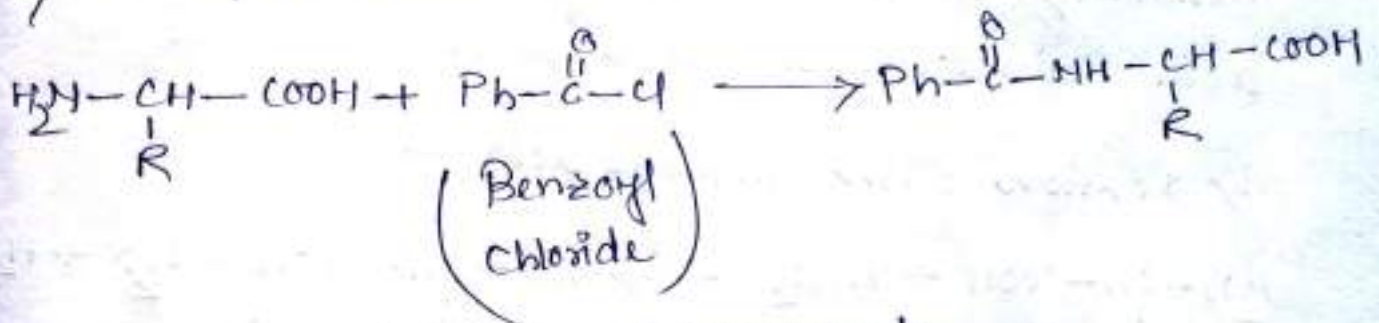 H₂N-CH-COOH + Ph-C-Cl → Ph-C-NH-CH-COOH
O O
R R
(Benzoyl
Chloride)